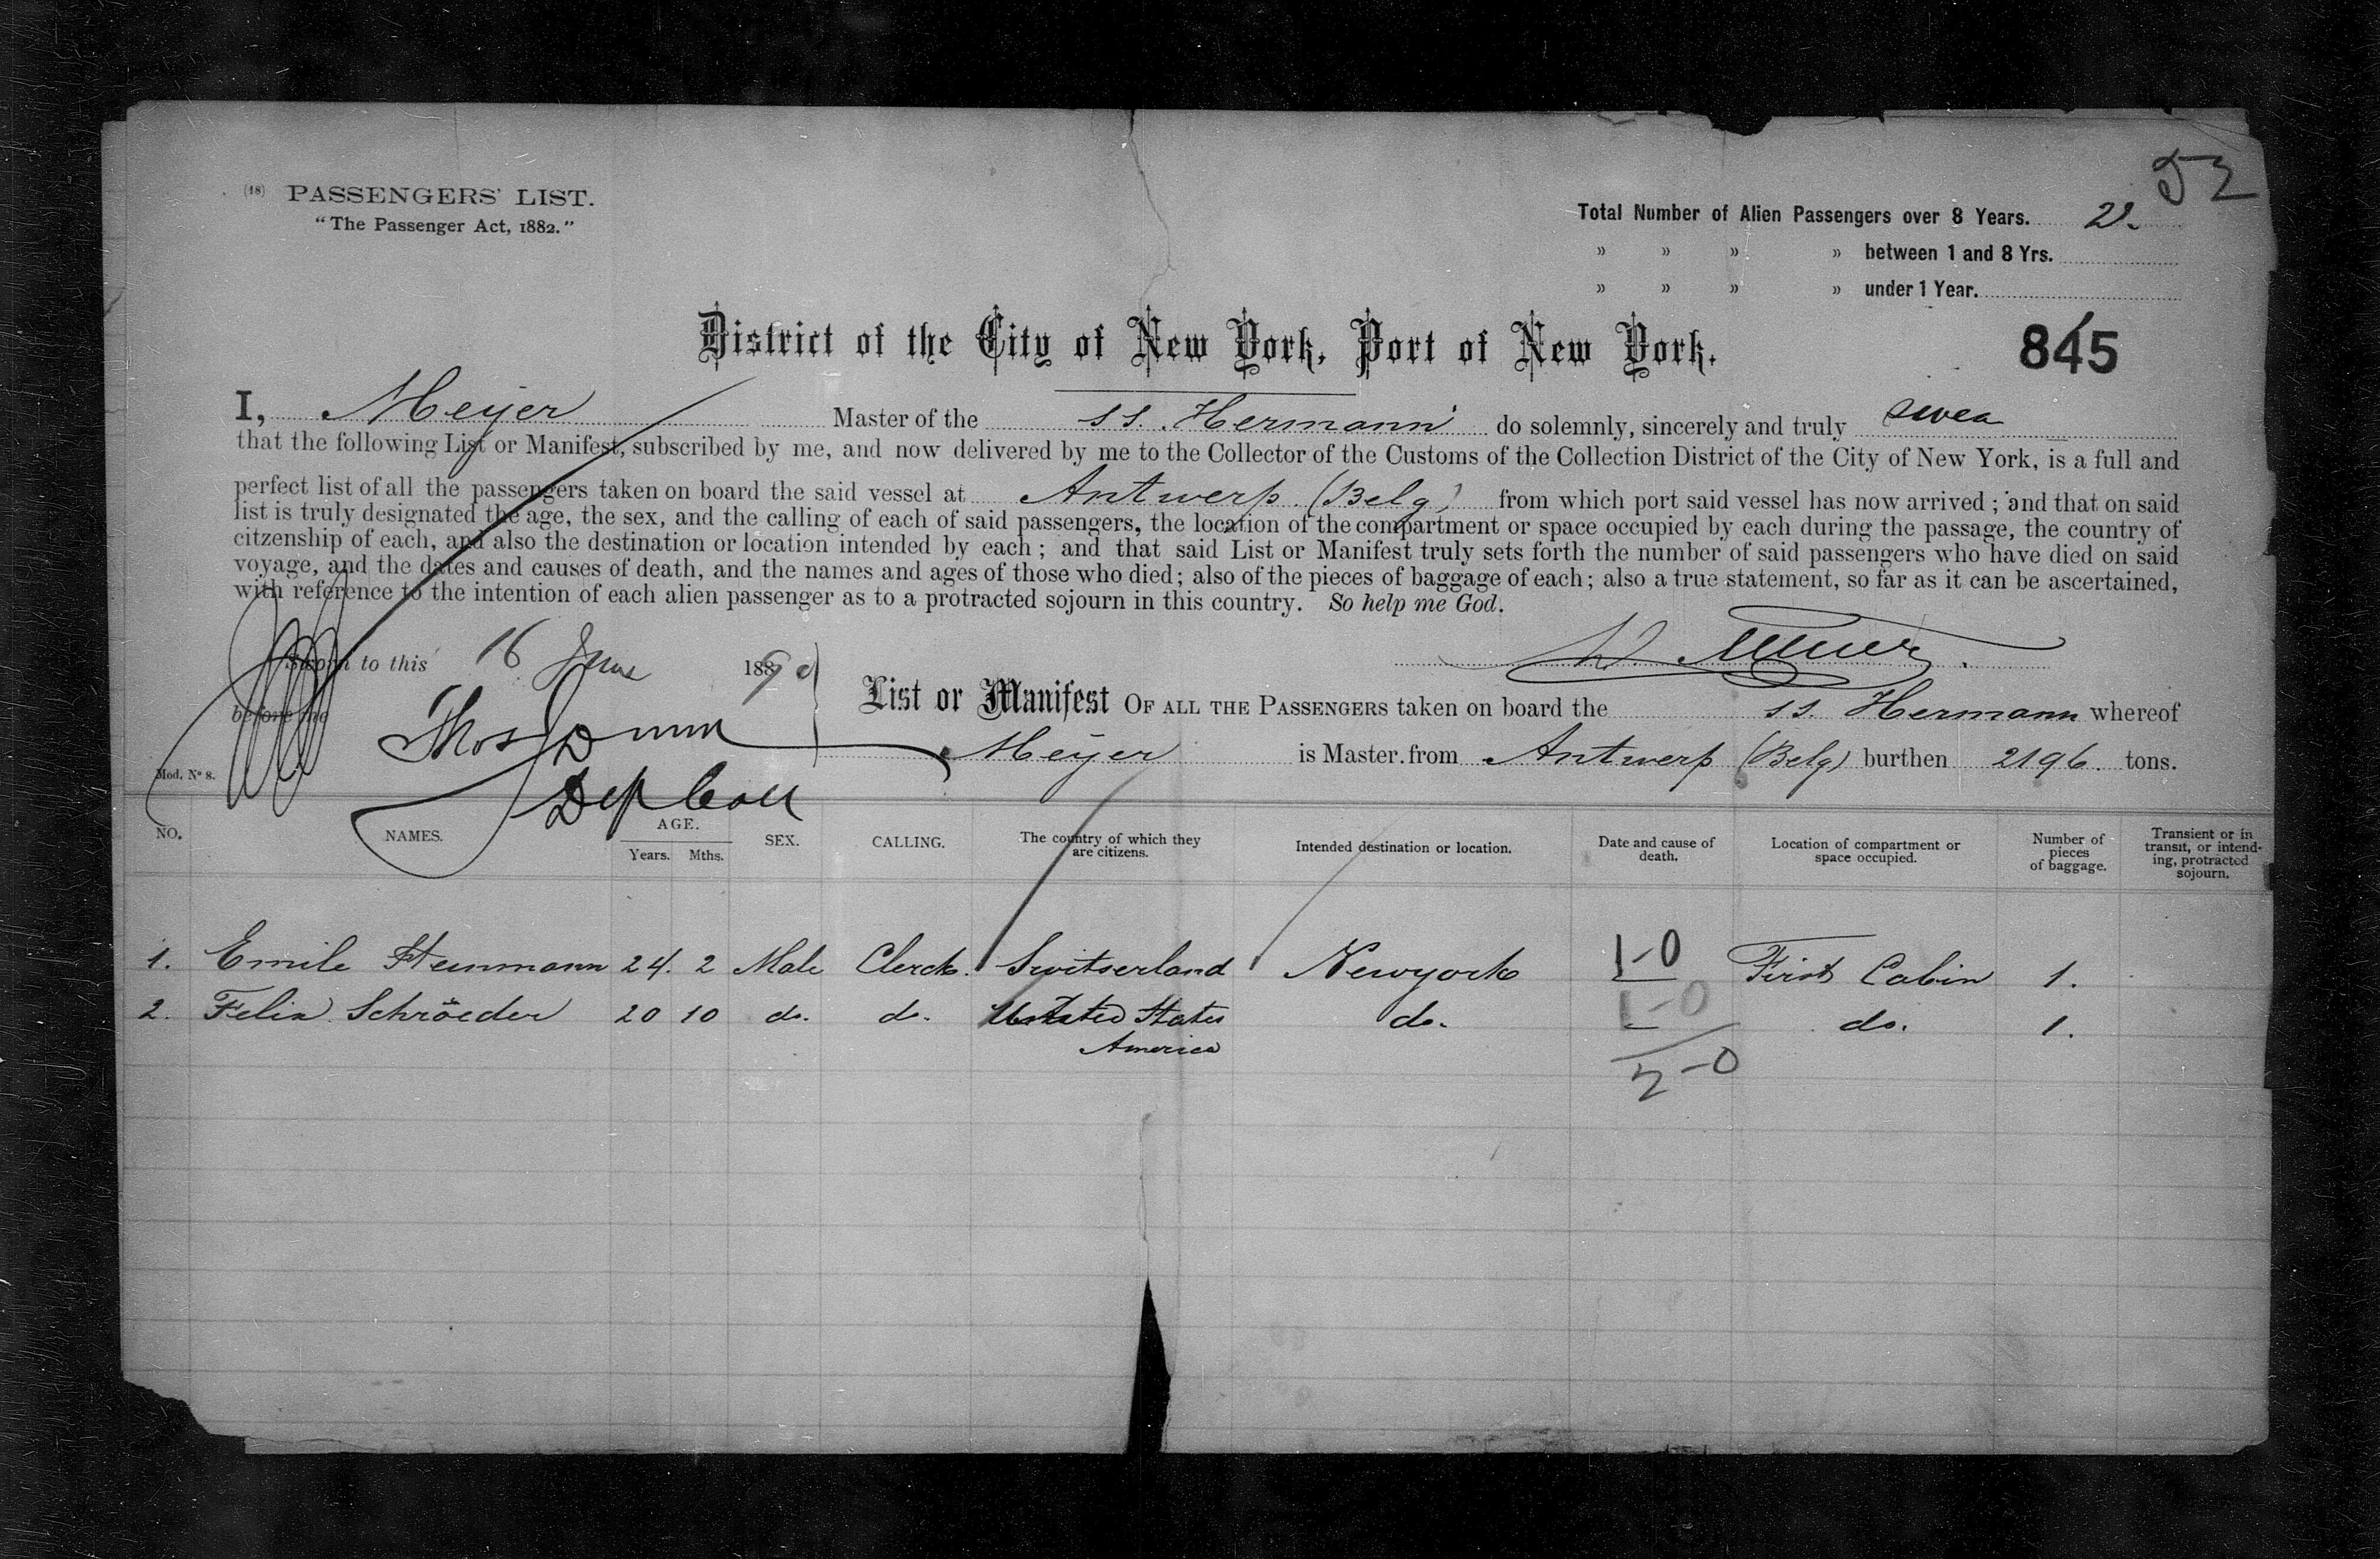 52
(18) PASSENGERS' LIST.
"The Passenger Act, 1882."
Total Number of Alien Passengers over 8 Years. 2.
» » » » between 1 and 8 Yrs.
» » » » under 1 Year.
District of the City of New York, Port of New York.
845
I, Meyer Master of the ss. Hermann do solemnly, sincerely and truly swea
that the following List or Manifest, subscribed by me, and now delivered by me to the Collector of the Customs of the Collection District of the City of New York, is a full and
perfect list of all the passengers taken on board the said vessel at Antwerp (Belg) from which port said vessel has now arrived; and that on said
list is truly designated the age, the sex, and the calling of each of said passengers, the location of the compartment or space occupied by each during the passage, the country of
citzenship of each, and also the destination or location intended by each; and that said List or Manifest truly sets forth the number of said passengers who have died on said
voyage, and the dates and causes of death, and the names and ages of those who died; also of the pieces of baggage of each; also a true statement, so far as it can be ascertained,
with reference to the intention of each alien passenger as to a protracted sojourn in this country. So help me God.
Sworn to this 16 June 1890
before me Thos Dunn
Dep Coll
List or Manifest OF ALL THE PASSENGERS taken on board the ss. Hermann whereof
Meyer is Master from Antwerp (Belg) burthen 2196 tons.
Mod. Nº 8.
NO. NAMES. AGE. Years. Mths. SEX. CALLING. The country of which they are citizens. Intended destination or location. Date and cause of death. Location of compartment or space occupied. Number of pieces of baggage. Transient or in transit, or intending, protracted sojourn.
1. Emile Steinmann 24. 2 Male Clerck. Switserland Newyork 1-0 First Cabin 1.
2. Felix Schröeder 20 10 do. do. United States do. 1-0 do. 1.
America
2-0